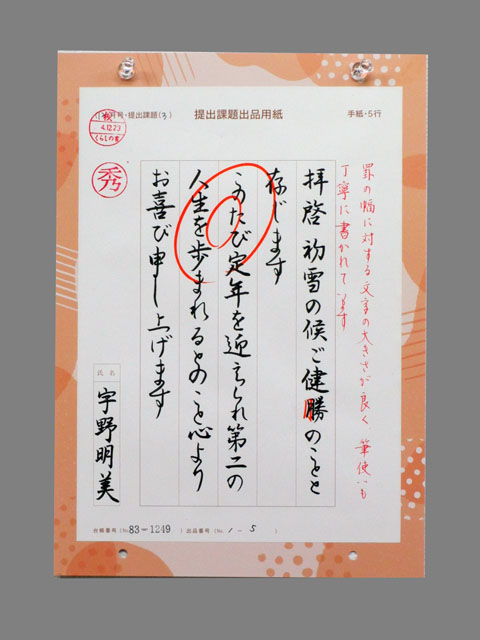 月号・提出課題(3)
提出課題出品用紙
手紙・5行
4.12.23
くらしの書
秀
罫の幅に対する文字の大きさが良く、筆使いも
丁寧に書かれています
拝啓 初雪の候ご健勝のことと
存じます
このたび定年を迎えられ第二の
人生を歩まれるとのこと心より
お喜び申し上げます
氏名
宇野明美
台帳番号(No.83-1249)出品番号(No.1-5)